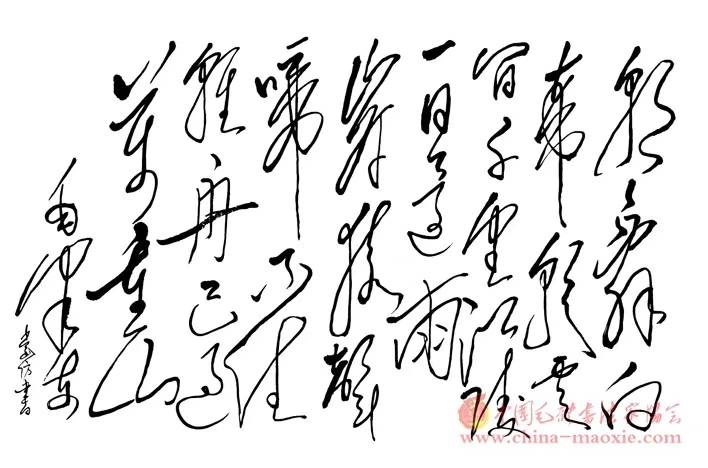 朝辭白
帝彩雲
间千里江陵
一日還两
岸猿聲
啼不住
輕舟已过
萬重山
毛泽东
中国毛体书法家协会
www.china-maoxie.com